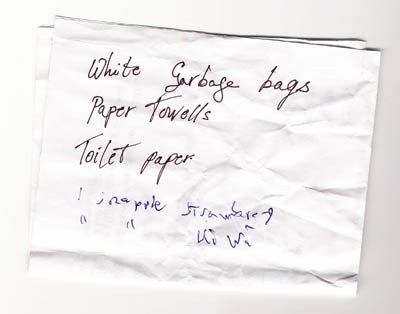 White Garbage bags
Paper Towells
Toilet paper
1 ineapple strawberry
" " Ki wi